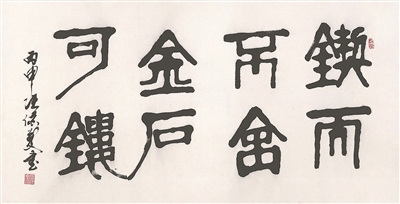 鍥而
不舍
金石
可鏤
丙申